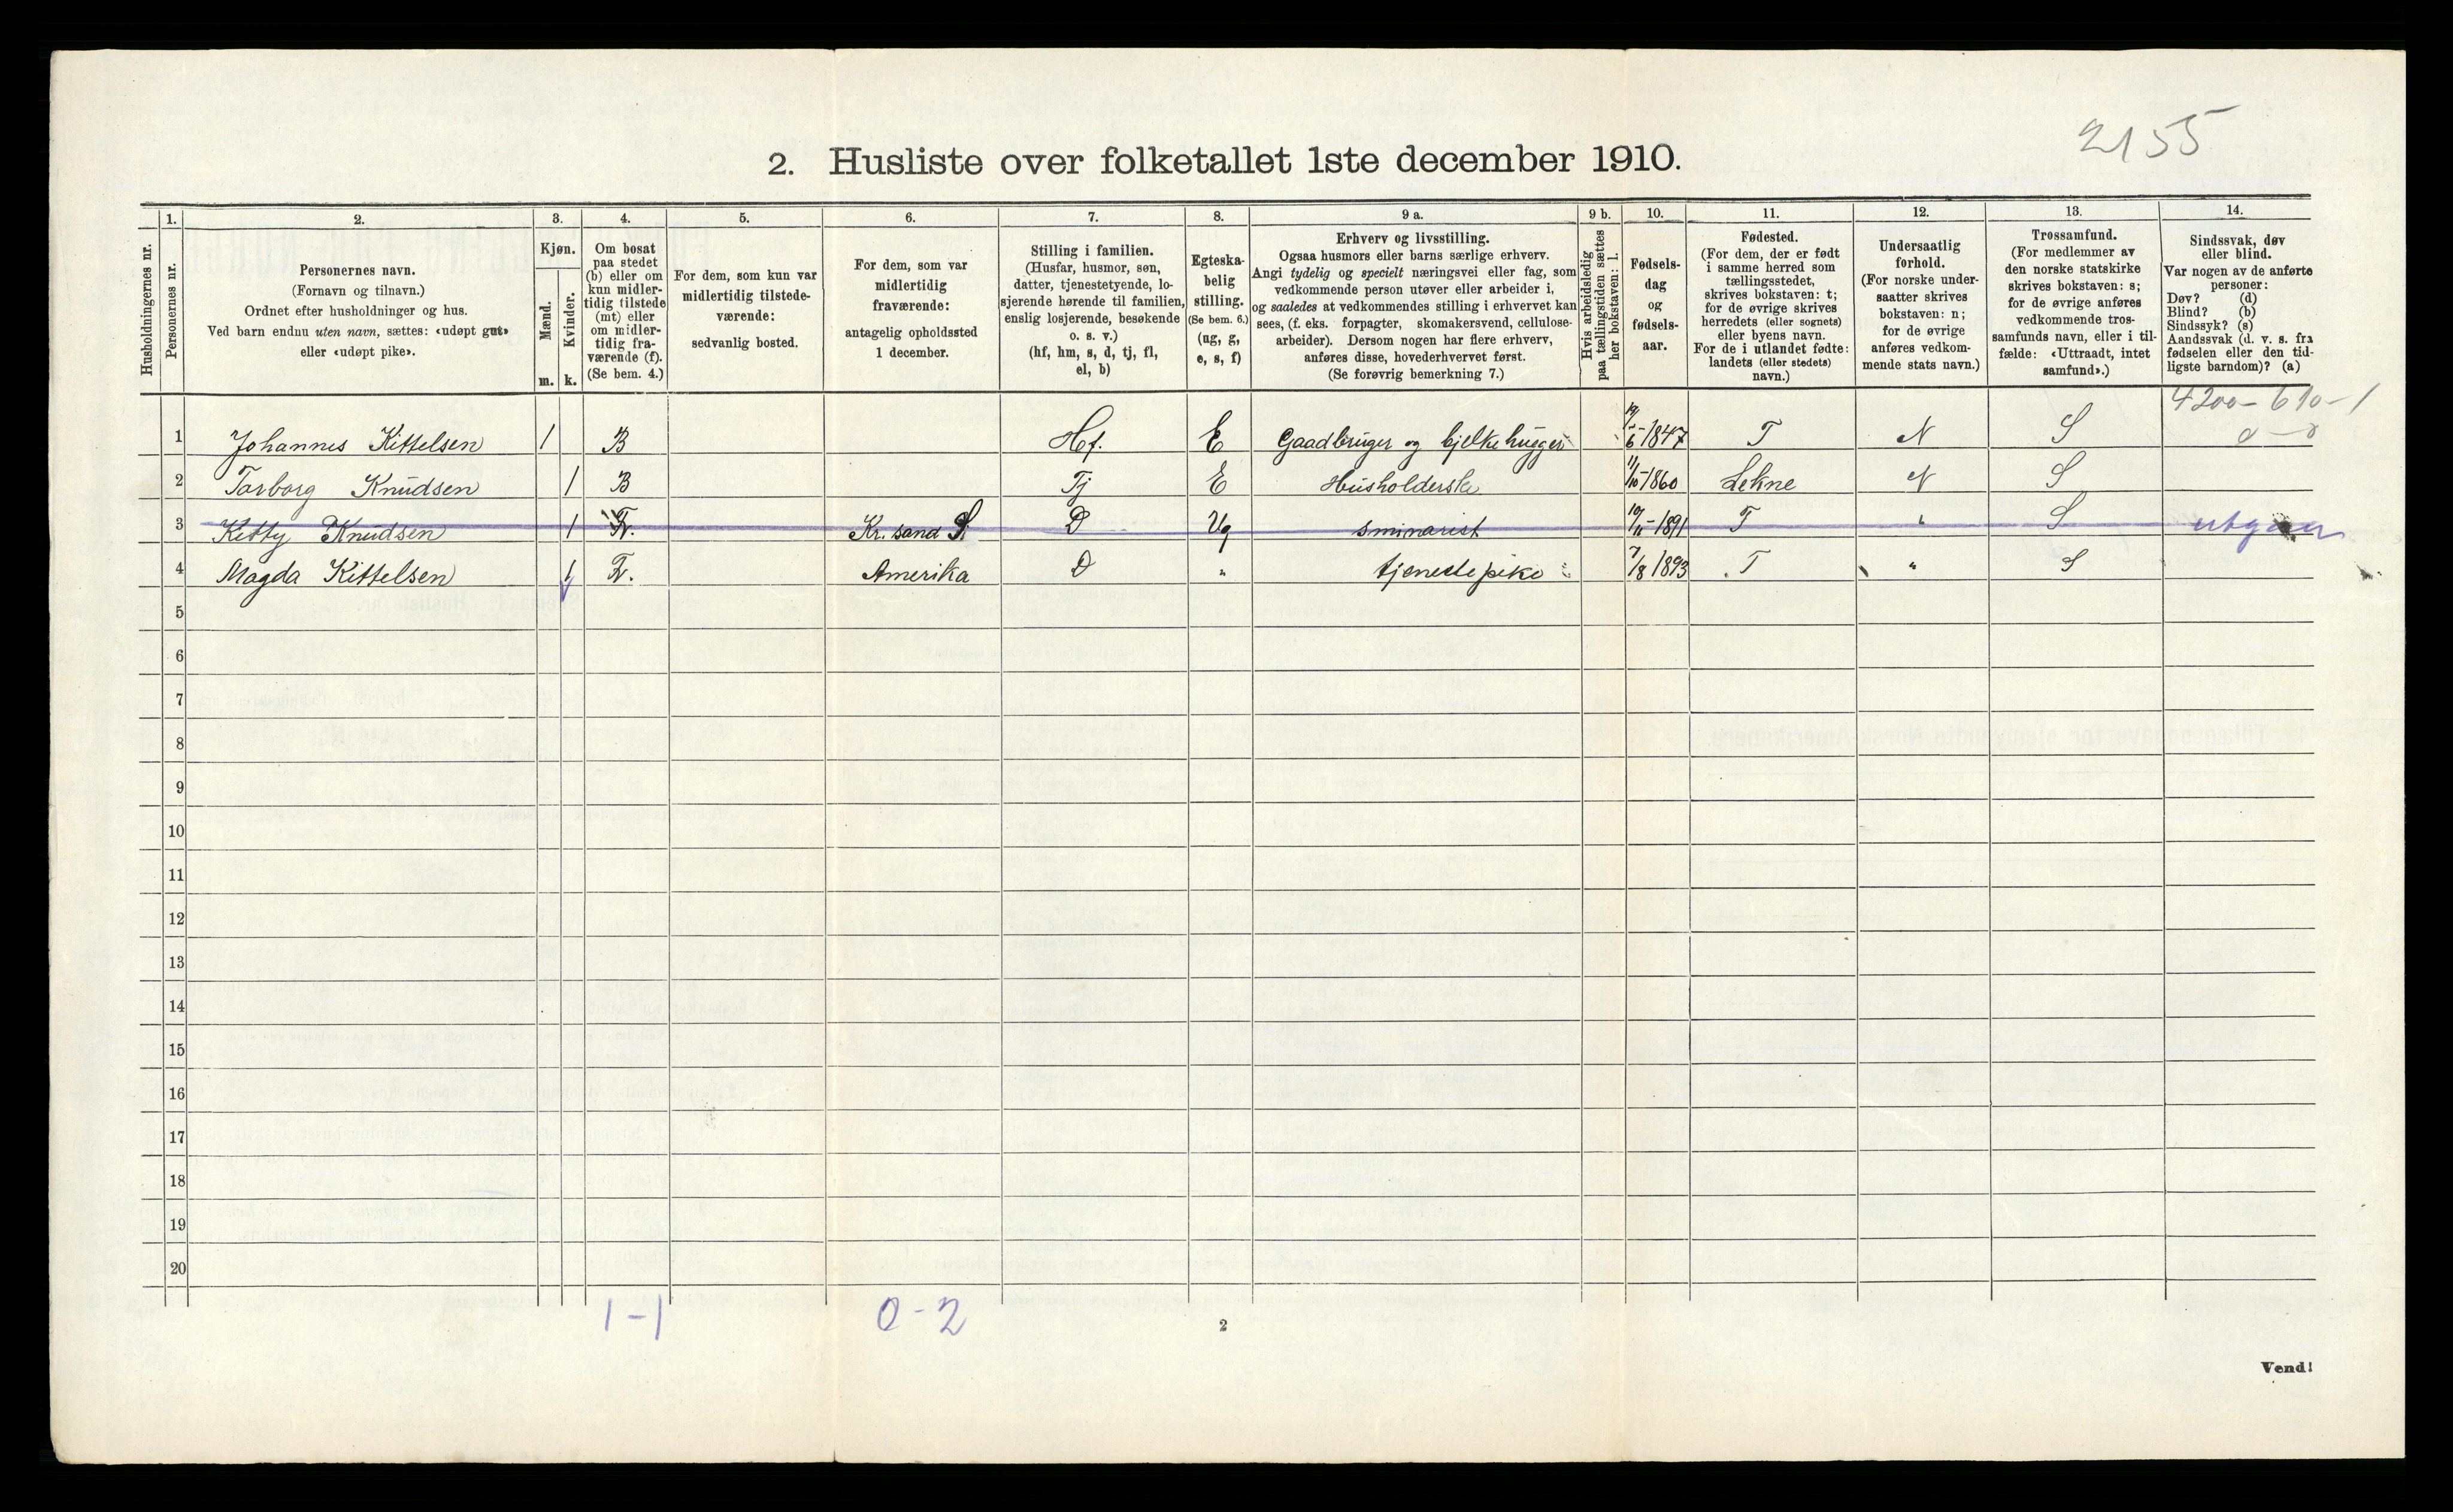 2155
2. Husliste over folketallet 1ste december 1910.
Husholdningernes nr.
1. Personernes nr.
2. Personernes navn. (Fornavn og tilnavn.) Ordnet efter husholdninger og hus. Ved barn endnu uten navn, sættes: «udøpt gut» eller «udøpt pike».
3. Kjøn. Mænd. m. Kvinder. k.
4. Om bosat paa stedet (b) eller om kun midler-tidig tilstede (mt) eller om midler-tidig fra-værende (f). (Se bem. 4.)
5. For dem, som kun var midlertidig tilstede-værende: sedvanlig bosted.
6. For dem, som var midlertidig fraværende: antagelig opholdssted 1 december.
7. Stilling i familien. (Husfar, husmor, søn, datter, tjenestetyende, lo-sjerende hørende til familien, enslig losjerende, besøkende o. s. v.) (hf, hm, s, d, tj, fl, el, b)
8. Egteska-belig stilling. (Se bem. 6.) (ug, g, e, s, f)
9 a. Erhverv og livsstilling. Ogsaa husmors eller barns særlige erhverv. Angi tydelig og specielt næringsvei eller fag, som vedkommende person utøver eller arbeider i, og saaledes at vedkommendes stilling i erhvervet kan sees, (f. eks. forpagter, skomakersvend, cellulose-arbeider). Dersom nogen har flere erhverv, anføres disse, hovederhvervet først. (Se forøvrig bemerkning 7.)
9 b. Hvis arbeidsledig paa tællingstiden sættes her bokstaven: l.
10. Fødsels-dag og fødsels-aar.
11. Fødested. (For dem, der er født i samme herred som tællingsstedet, skrives bokstaven: t; for de øvrige skrives herredets (eller sognets) eller byens navn. For de i utlandet fødte: landets (eller stedets) navn.)
12. Undersaatlig forhold. (For norske under-saatter skrives bokstaven: n; for de øvrige anføres vedkom-mende stats navn.)
13. Trossamfund. (For medlemmer av den norske statskirke skrives bokstaven: s; for de øvrige anføres vedkommende tros-samfunds navn, eller i til-fælde: «Uttraadt, intet samfund».)
14. Sindssvak, døv eller blind. Var nogen av de anførte personer: Døv? (d) Blind? (b) Sindssyk? (s) Aandssvak (d. v. s. fra fødselen eller den tid-ligste barndom)? (a)
4200-610-1
1 Johannes Kittelsen 1 B Hf. E Gaadbruger og bjelkehugger 1847 T N S
2 Torborg Knudsen 1 B Tj E Husholderske 11/10-1860 Lekne N S
3 Kitty Knudsen 1 Fr. Kr. sand S. D Ug sminarist 1891 T " S utgaar
4 Magda Kittelsen 1 Fr. Amerika D " tjenestepike 7/8 1893 T " S
5
6
7
8
9
10
11
12
13
14
15
16
17
18
19
20
1-1 0-2
2
Vend!